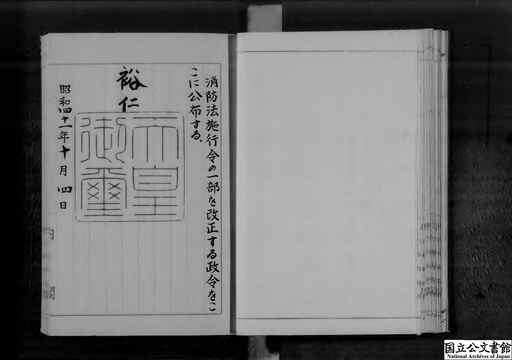 消防法施行令の一部を改正する政令をこ
こに公布する。
裕仁
天皇
御璽
昭和四十一年十月四日
内閣
国立公文書館
National Archives of Japan